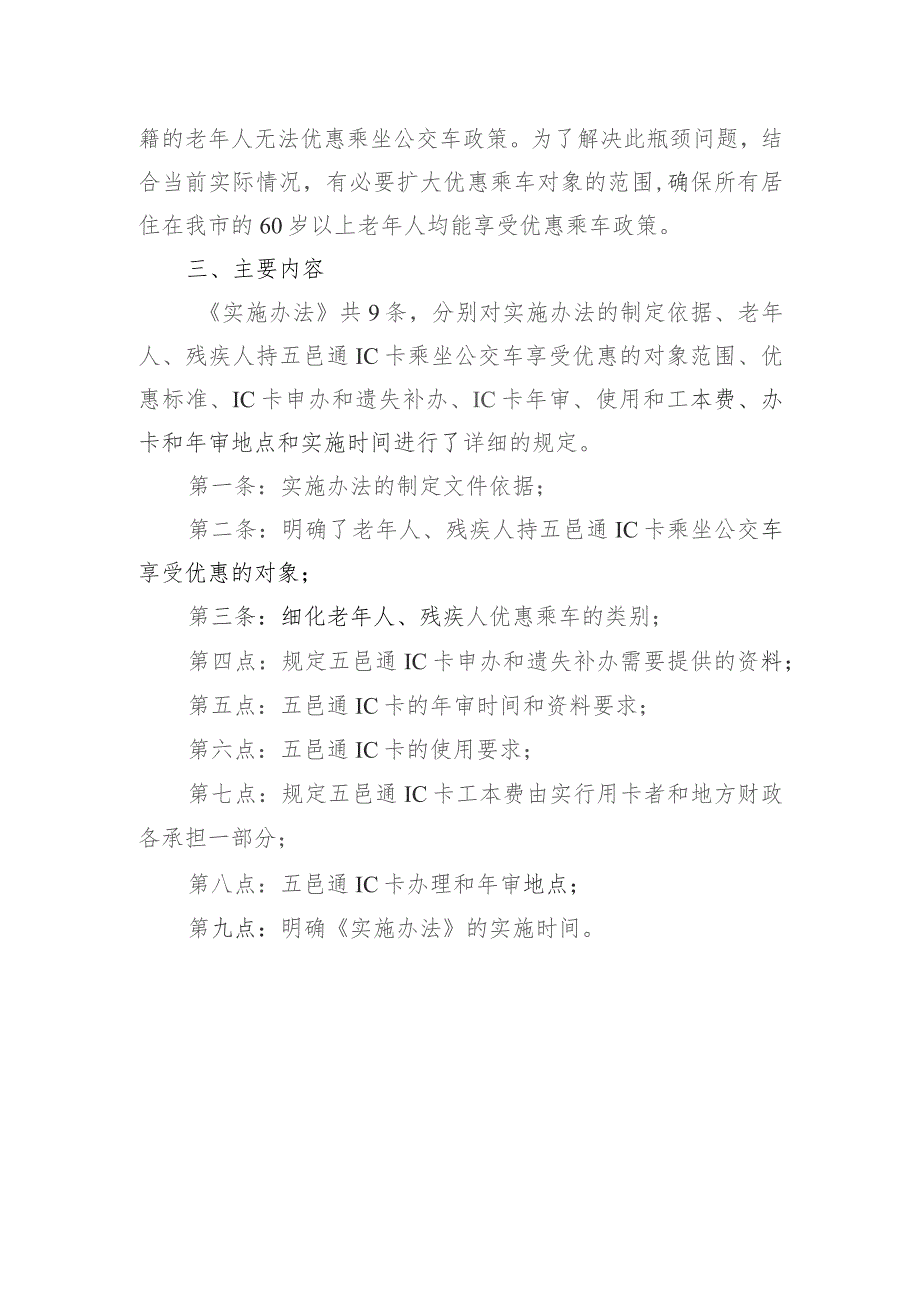 籍的老年人无法优惠乘坐公交车政策。为了解决此瓶颈问题，结
合当前实际情况，有必要扩大优惠乘车对象的范围,确保所有居
住在我市的60岁以上老年人均能享受优惠乘车政策。
三、主要内容
《实施办法》共9条，分别对实施办法的制定依据、老年
人、残疾人持五邑通IC卡乘坐公交车享受优惠的对象范围、优
惠标准、IC卡申办和遗失补办、IC卡年审、使用和工本费、办
卡和年审地点和实施时间进行了详细的规定。
第一条：实施办法的制定文件依据；
第二条：明确了老年人、残疾人持五邑通IC卡乘坐公交车
享受优惠的对象；
第三条：细化老年人、残疾人优惠乘车的类别；
第四点：规定五邑通IC卡申办和遗失补办需要提供的资料；
第五点：五邑通IC卡的年审时间和资料要求；
第六点：五邑通IC卡的使用要求；
第七点：规定五邑通IC卡工本费由实行用卡者和地方财政
各承担一部分；
第八点：五邑通IC卡办理和年审地点；
第九点：明确《实施办法》的实施时间。